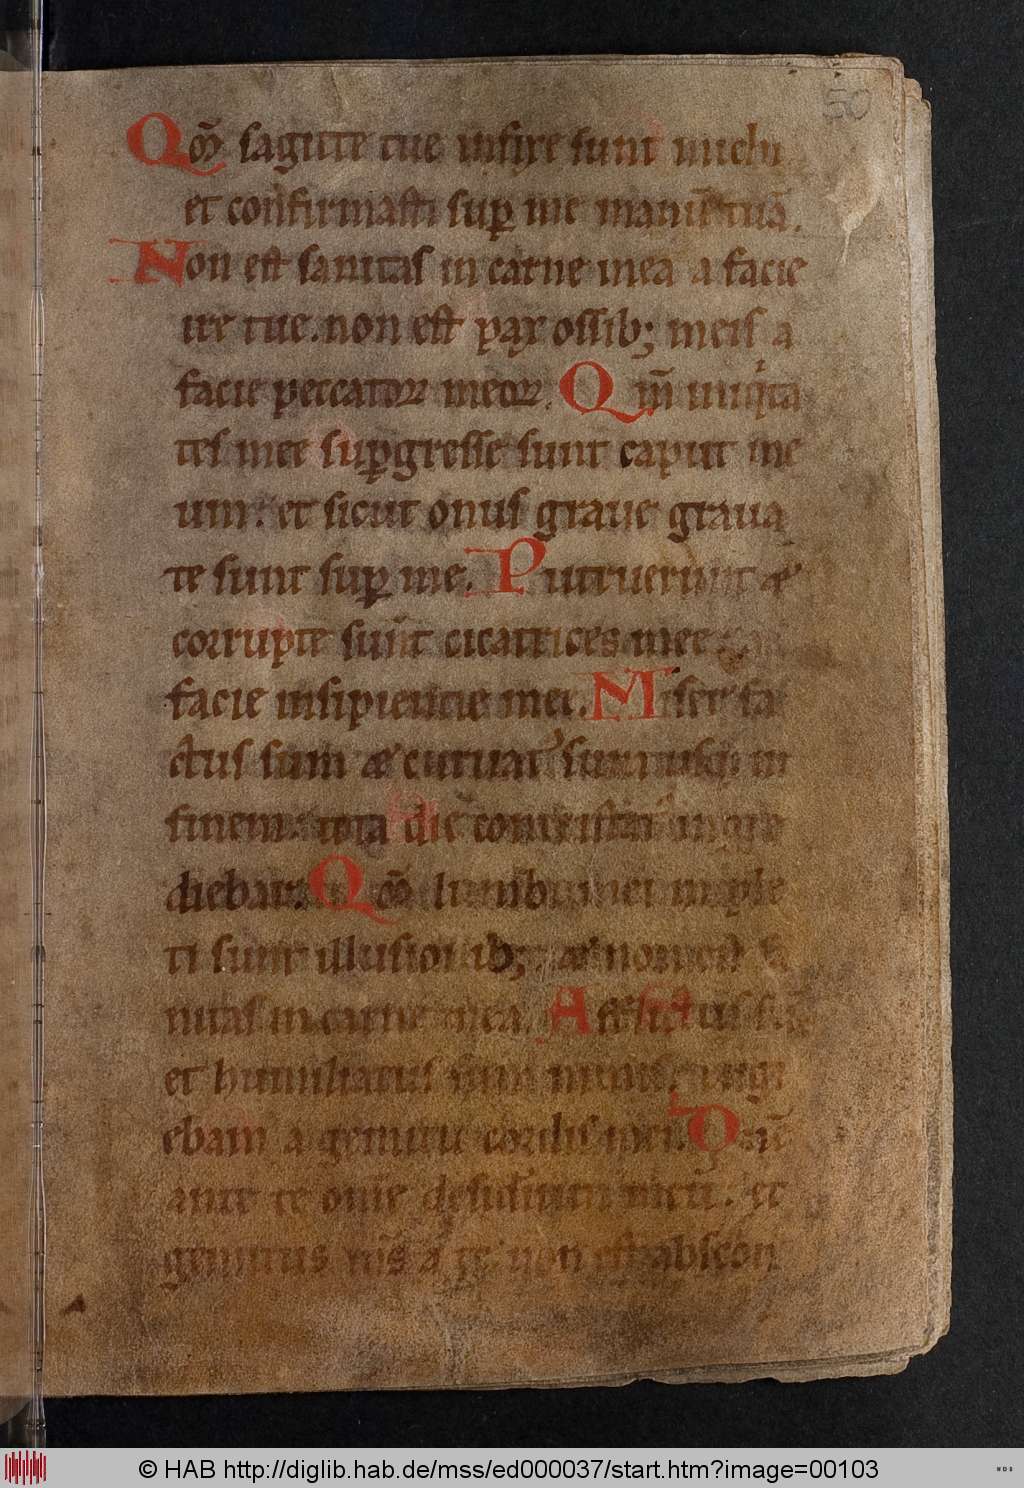 50
Qm̄ sagitte tue infixe sunt michi
et confirmasti sup me manū tuā.
Non est sanitas in carne mea a facie
ire tue. non est pax ossib; meis a
facie peccator meor. Qm̄ iniqita
tes mee supgresse sunt caput me
um. et sicut onus graue graua
te sunt sup me. Putruerunt &
corrupte sunt cicatrices mee.
facie insipientie mee. Miser fa
ctus sum & curuat sum usq in
finem. tota die contristat ingre
diebar. Qm̄ lumbi mei imple
ti sunt illusionib; & non est sa
nitas in carne mea. Afflictus s.
et humiliatus sum nimis. rugi
ebam a gemitu cordis mei. Dn̄e
ante te om̄e desideriū meū. et
gemitus ms a te non est abscon
© HAB http://diglib.hab.de/mss/ed000037/start.htm?image=00103